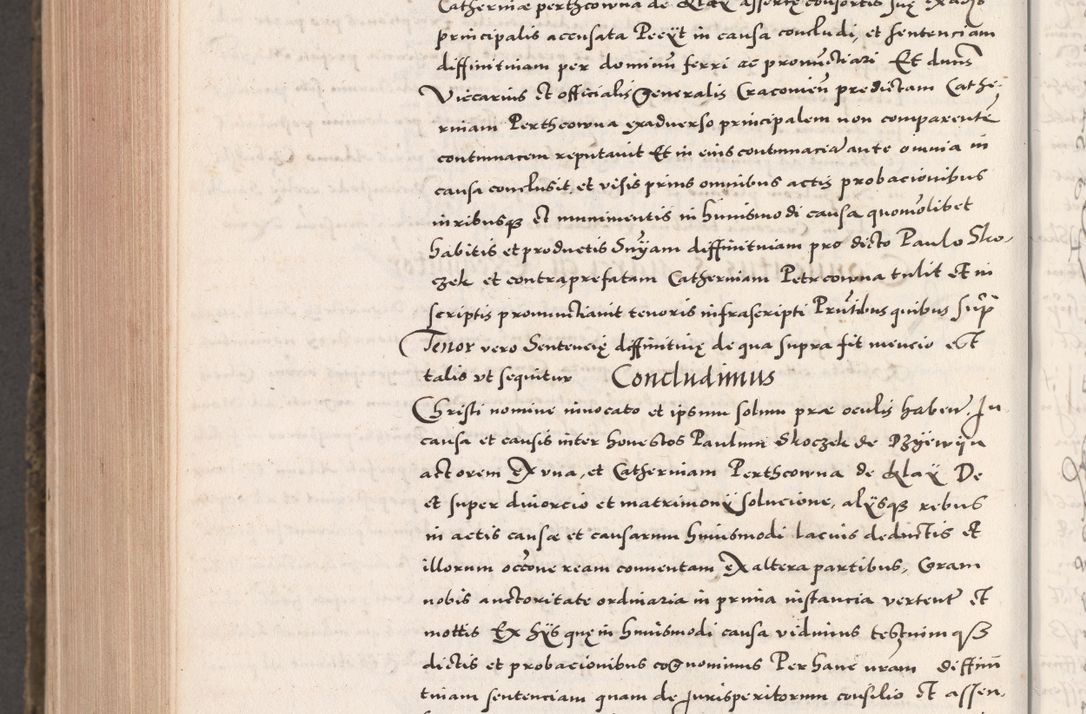 Catherinæ perthcowna de Klay assertę consortis suę ex adỹs
principalis accusata Peeÿt in causa concludi, et sentenciam
diffinitiuam per dominū ferri ac pronūctiari Et duūs
Viccarius et officialis Generalis Cracouieñ predictam Cathe-
rniam Perthcowna exaduerso principalem non comparentē
contumacem reputauit Et in eius contumaciā ante omnia in
causa conclusit, et visis prius omnibus actis probacionibus
iuribusqȝ et munimentis in huiusmodi causa quomolibet
habitis et productis Snÿam diffinitiuam pro dicto Paulo Sko-
czek et contraprefatam Catherniam Petrcowna tulit et in
scriptis pronunctiauit tenoris infrascripti Pn̄tibus quibus sup̄
Tenor vero Sentencię diffinitiuę de qua supra fit mencio est
talis vt sequitur Concludimus
Christi nomine inuocato et ipsum solum præ oculis haben̄. In
causa et causis inter honestos Paulum Skoczek de
actorem ex vna, et Catherniam Perthcowna de Klaÿ De
et super diuorcio et matrimonÿ solucione, alÿsqȝ rebus
in actis causæ et causarum huiusmodi lacius deductis et
illorum occōne ream conuentam ex altera partibus, Coram
nobis auctoritate ordinaria in prima instancia vertent̄ et
mottis Ex hÿs quę in huiusmodi causa vidimus
dictis et probacionibus cognouimus Per hanc nr̄am diffini
tiuam sentenciam quam de jurisperitorum consilio et assen-